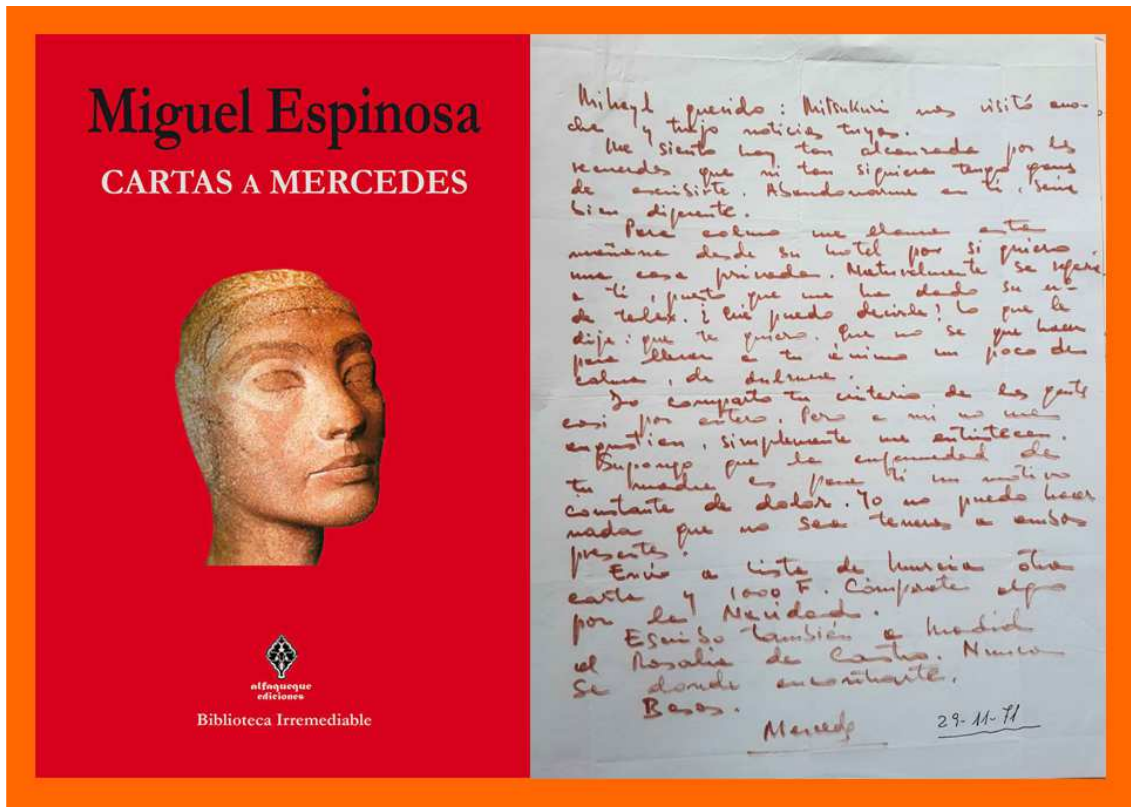 Miguel Espinosa
CARTAS A MERCEDES
alfaqueque
ediciones
Biblioteca Irremediable
querido: Mitsukuri nos visitó ano-
che y trajo noticias tuyas.
Me siento hoy tan alcanzada por los
recuerdos que ni tan siquiera tengo ganas
de escribirte. Abandonarme en ti, sería
bien diferente.
Para colmo me llama esta
mañana desde su hotel por si quiero
una cosa privada. Naturalmente se refería
a ti, puesto que me ha dado su nº
de telex. ¿Qué puedo decirle? Lo que le
dije: que te quiero. Que no se que hacer
para llevar a tu ánimo un poco de
calma, de dulzura.
Yo comparto tu criterio de las gentes
casi por entero. Pero a mi no me
angustian, simplemente me entristecen.
Supongo que la enfermedad de
tu madre es para ti un motivo
constante de dolor. Yo no puedo hacer
nada que no sea teneros a ambos
presentes.
Envío a lista de Murcia otra
carta y 1000 F. Cómprate algo
por la Navidad.
Escribo también a Madrid
al Rosalía de Castro. Nunca
se donde encontrarte.
Besos.
Mercedes
29-11-71